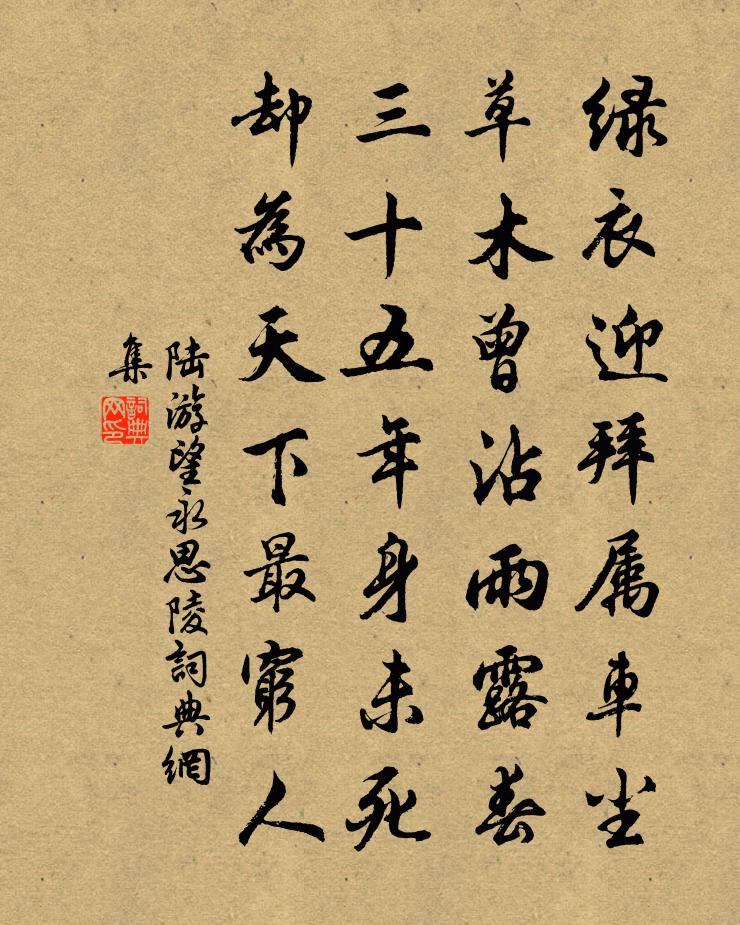 绿衣迎拜属車尘
草木曾沾雨露春
三十五年身未死
却為天下最窮人
陆游望永思陵詞典網
集
詞典
网印